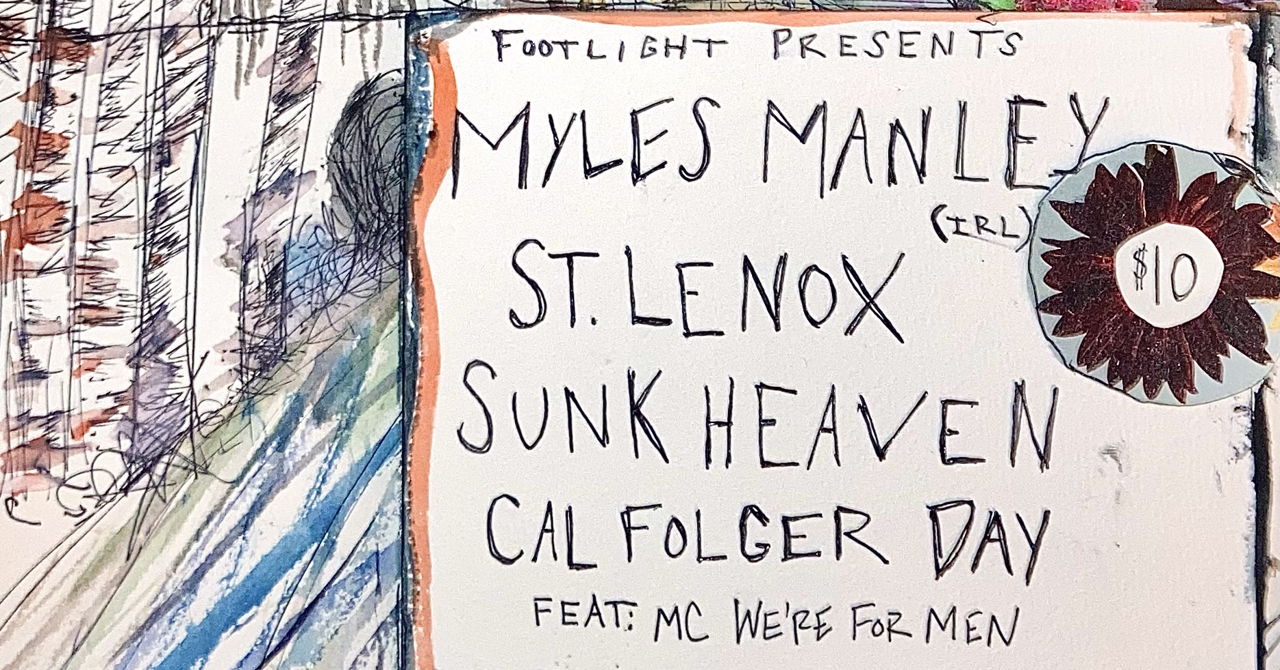 FOOTLIGHT PRESENTS
MYLES MANLEY
(IRL)
$10
ST. LENOX
SUNK HEAVEN
CAL FOLGER DAY
FEAT: MC WE'RE FOR MEN